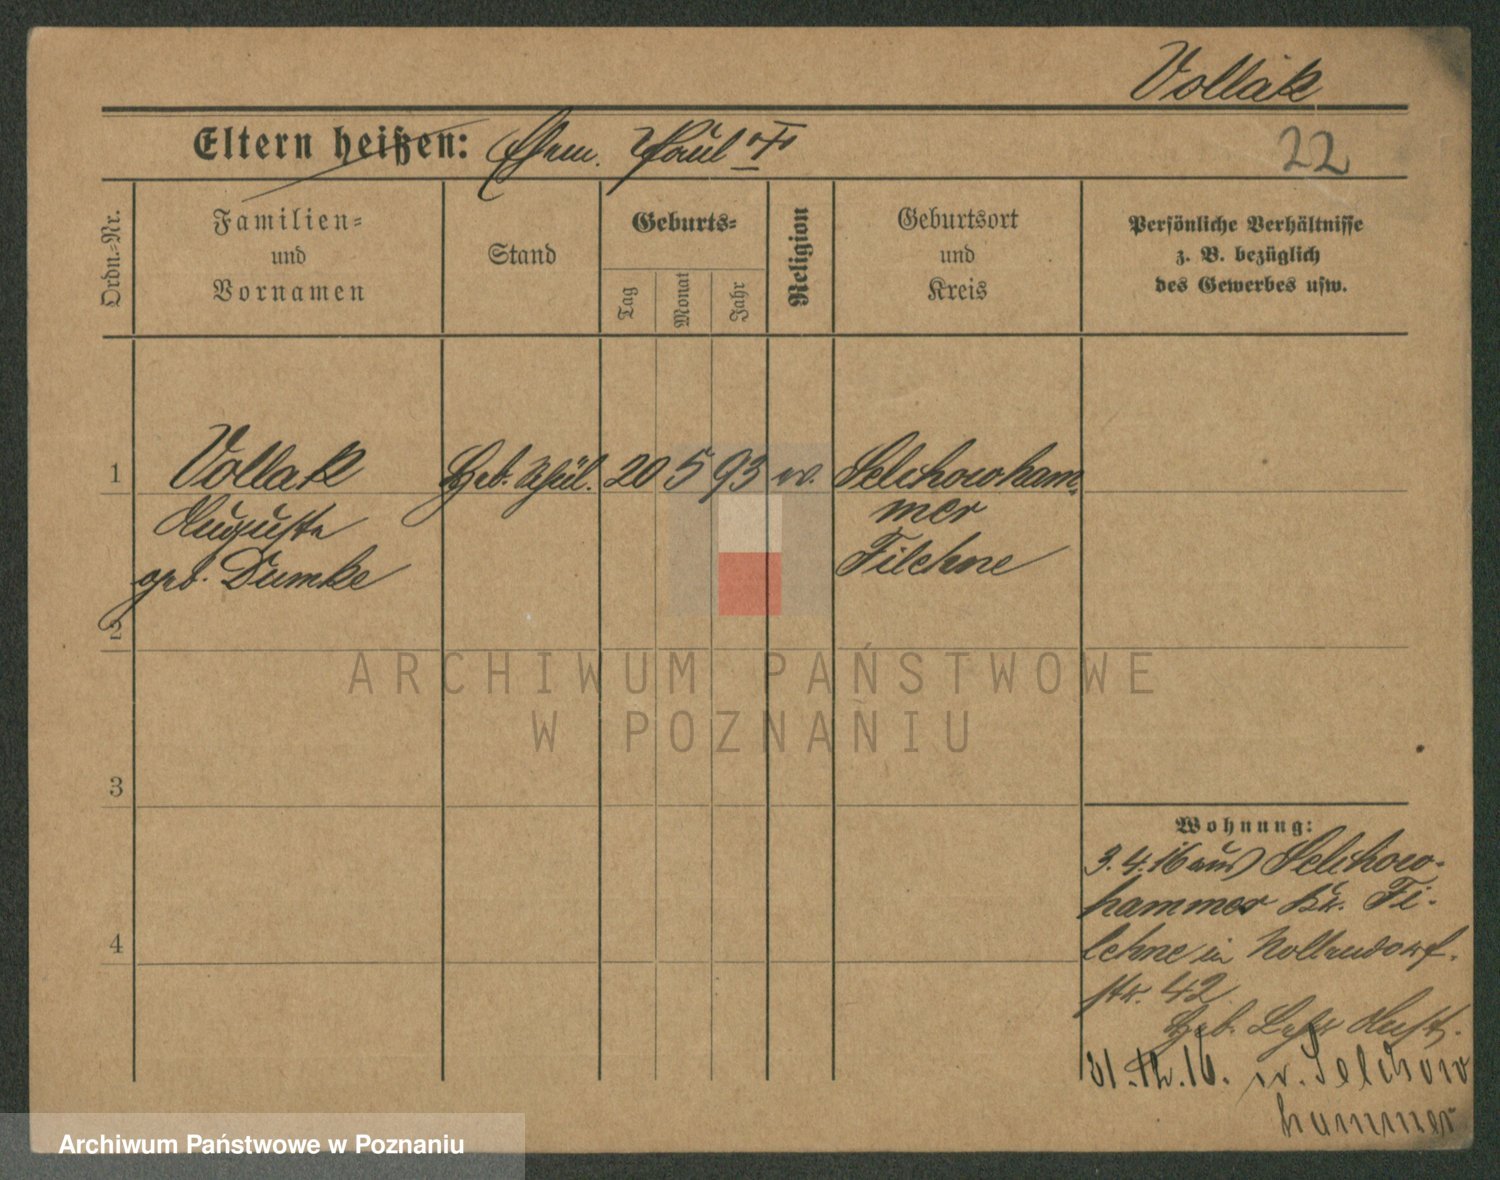 Vollak
Eltern heißen: Ehem. Paul
22
Ordn.-Nr.
Familien-
und
Vornamen
Stand
Geburts-
Tag
Monat
Jahr
Religion
Geburtsort
und
Kreis
Persönliche Verhältnisse
z. B. bezüglich
des Gewerbes usw.
1
Vollak
Auguste
geb. Dumke
Heb. Schül.
20 5 93
ev.
Selchowham-
mer
Filehne
2
3
4
Wohnung:
3.4.16 aus Selchow-
hammer Kr. Fi-
lehne in Nollendorf-
str. 42
Heb.
31.12.16. n. Selchow
hammer
ARCHIWUM PAŃSTWOWE
W POZNANIU
Archiwum Państwowe w Poznaniu